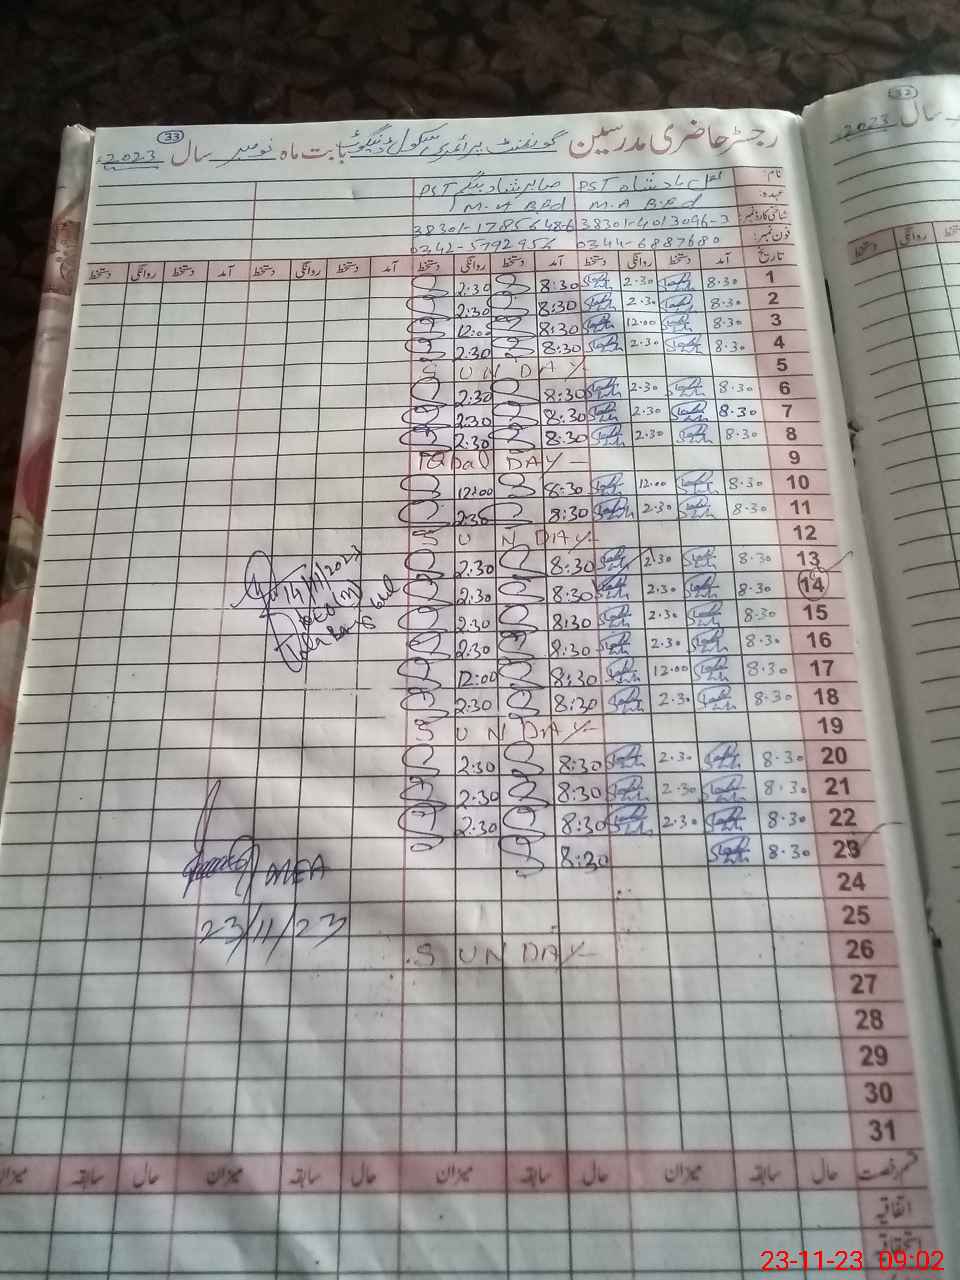 رجسٹر حاضری مدرسین گورنمنٹ پرائمری سکول بابت ماہ نومبر سال 2023ء 33
نام: بادشاہ PST صابر شاد بیگم PST
عہدہ: M.A B.Ed M.A B.Ed
شناختی کارڈ نمبر: 38301-4013096-3 38301-1785648-6
فون نمبر: 0344-6887680 0342-5792956
تاریخ آمد دستخط روانگی دستخط آمد دستخط روانگی دستخط آمد دستخط روانگی دستخط آمد دستخط روانگی دستخط
1 8.30 2.30 8:30 2:30
2 8.30 2.30 8:30 2:30
3 8.30 12.00 8:30 12:00
4 8.30 2.30 8:30 2:30
5 SUNDAY
6 8.30 2.30 8:30 2:30
7 8.30 2.30 8:30 2:30
8 8.30 2.30 8:30 2:30
9 DAY
10 8.30 12.00 8:30 12:00
11 8.30 2.30 8:30 2:30
12 SUNDAY
13 8.30 2.30 8:30 2:30
14 8.30 2.30 8:30 2:30
15 8.30 2.30 8:30 2:30
16 8.30 2.30 8:30 2:30
17 8.30 12.00 8:30 12:00
18 8.30 2.30 8:30 2:30
19 SUNDAY
20 8.30 2.30 8:30 2:30
21 8.30 2.30 8:30 2:30
22 8.30 2.30 8:30 2:30
23 8.30 8:30
24
25
26 SUNDAY
27
28
29
30
31
14/11/2023
MEA
23/11/23
قسم رخصت حال سابقہ میزان حال سابقہ میزان حال سابقہ میزان حال سابقہ میزان
اتفاقیہ
استحقاقیہ
32
سال 2023ء
روانگی دستخط
23-11-23 09:02